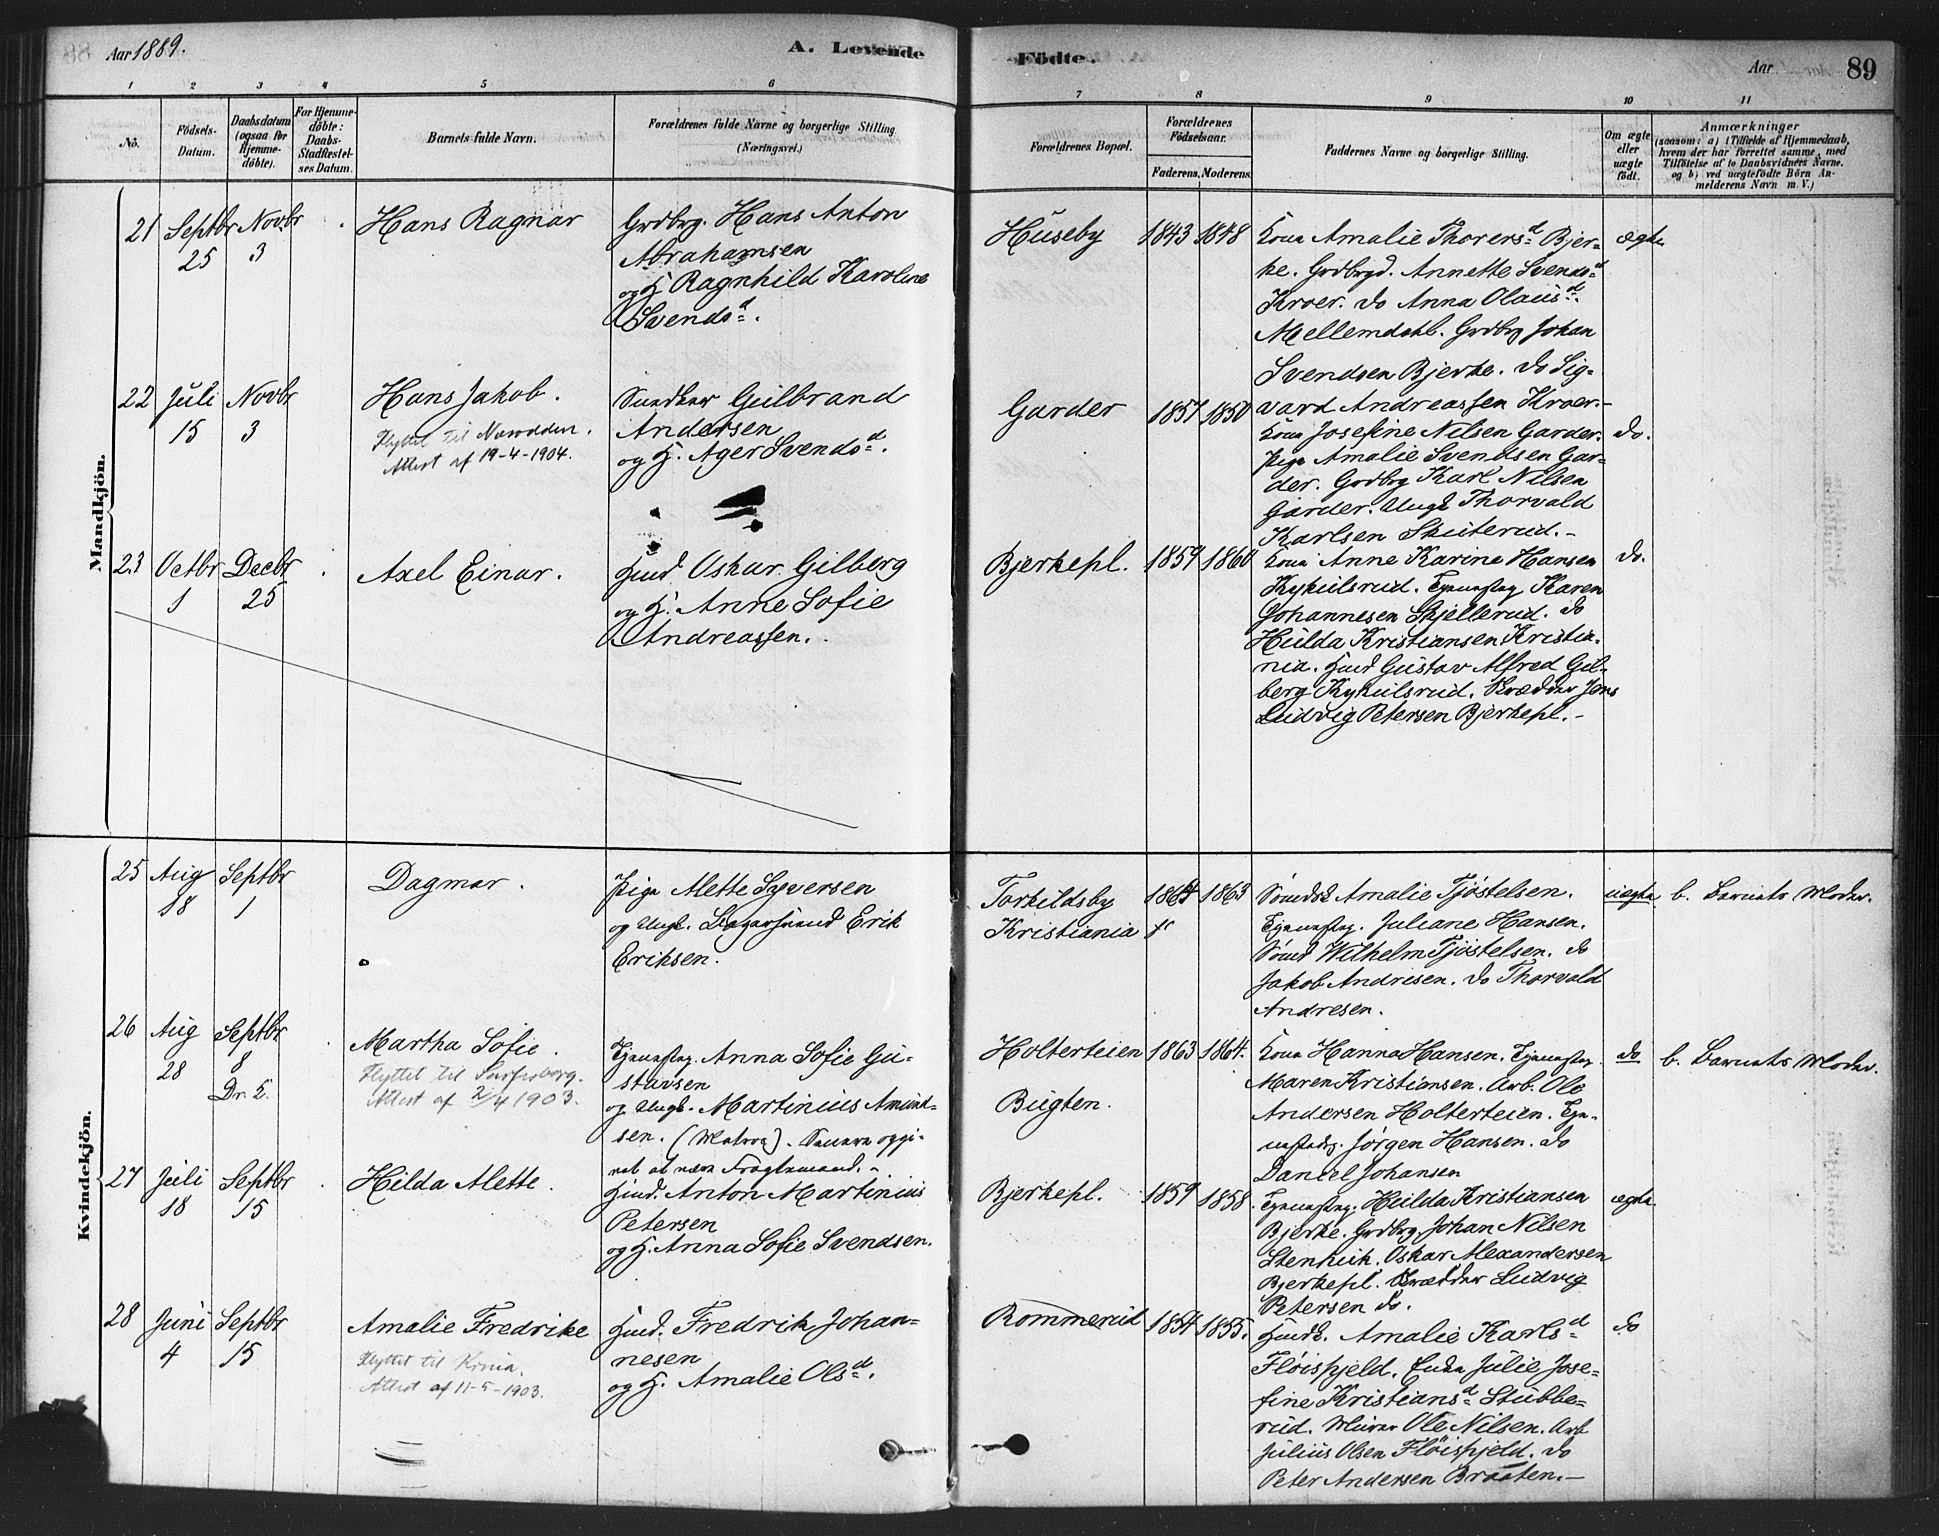 Aar 1889.
A. Levende
Födte.
Aar
89
1 2 3 4 5 6 7 8 9 10 11
No.
Födsels-Datum.
Daabsdatum (ogsaa for Hjemme-döbte).
For Hjemme-döbte: Daabs-Stadfæstel-ses Datum.
Barnets fulde Navn.
Forældrenes fulde Navne og borgerlige Stilling
(Næringsvei.)
Forældrenes Bopæl.
Forældrenes Födselsaar.
Faderens. Moderens.
Faddernes Navne og borgerlige Stilling.
Om ægte eller uægte födt.
Anmærkninger
(saasom: a) i Tilfælde af Hjemmedaab,
hvem der har forrettet samme, med
Tilföielse af to Daabsvidners Navne.
og b) ved uægtefödte Börn An-
melderens Navn m. V.)
Mandkjön.
21 Septbr 25 Novbr 3
Hans Ragnar
Grdbrg. Hans Anton
Abrahamsen
og H. Ragnhild Karoline
Svendsd.
Huseby 1843 1848
Kona Amalie Thorersd Bjer-
ke. Grdbrgd. Annette Svendsd
Kroer. do Anna Olausd
Mellemdahl. Grdbrg Johan
Svendsen Bjerke. do Sig-
vard Andreassen Kroer.-
ægte
22 Juli 15 Novbr 3
Hans Jakob.
Flyttet til Notodden.
Attest af 19-4-1904.
Gulbrand
Andersen
og H. Ager Svendsd.
Garder 1857 1850
Kona Josefine Nilsen Garder.
Pige Amalie Svendsen Gar-
der. Grdbrg Karl Nilsen
Garder. Ungk Thorvald
Karlsen Skuterud.-
do.
23 Octbr 1 Decbr 25
Axel Einar.
Husd. Oskar Gilberg
og H. Anne Sofie
Andreassen.
Bjerkepl. 1859 1860
Kona Anne Karine Hansen
Kykulsrud. Tjenestpg Karen
Johannesen Skjellerud. do
Hulda Kristiansen Kristia-
nia. Husd Gustav Alfred Gil-
berg Kykulsrud. Skrædder Jens
Ludvig Petersen Bjerkepl.-
do.
Kvindekjön.
25 Aug 18 Septbr 1
Dagmar.
Pige Alette Syversen
og Ungk. Bagersvend Erik
Eriksen.
Torkildsby 1863
Kristiania
Amalie Tjöstelsen.
Tjenestpg. Juliane Hansen.
Wilhelm Tjöstelsen. do
Jakob Andresen. do Thorvald
Andresen.
uægte
b. Barnets Moder.
26 Aug 28 Septbr 8
Martha Sofie.
Flyttet til Sarpsborg.
Attest af 2/4 1903.
Tjenestpg. Anna Sofie Gu-
stavsen
og Ungk. Martinius Amund-
sen. (Matros). Senere opgi-
vet at være Fragtemand.-
Holterteien 1863 1864.
Bugten.
Kona Hanna Hansen. Tjenestpg.
Maren Kristiansen. Arb. Ole
Andersen Holterteien. Tje-
nestedrg. Jörgen Hansen. do
Daniel Johansen
do
b. Barnets Moder.
27 Juli 18 Septbr 15
Hilda Alette.
Husd. Anton Martinius
Petersen
og H. Anna Sofie Svendsen.
Bjerkepl. 1859 1858.
Tjenestpg. Hulda Kristiansen
Bjerke. Grdbrg Johan Nilsen
Oskar Alexandersen
Bjerkepl. Skrædder Ludvig
Petersen do.
ægte
28 Juni 4 Septbr 15
Amalie Fredrike
Flyttet til Krnia.
Attest af 11-5-1903.
Husd. Fredrik Johan-
nesen
og H. Amalie Olsd.
Rommerud 1854 1855.
Amalie Karlsd
Flöispjeld. Enke Julie Jose-
fine Kristiansd Stubbe-
rud. Murer Ole Nilsen. Arb
Julius Olsen Flöispjeld. do
Peter Andersen Braaten.-
do